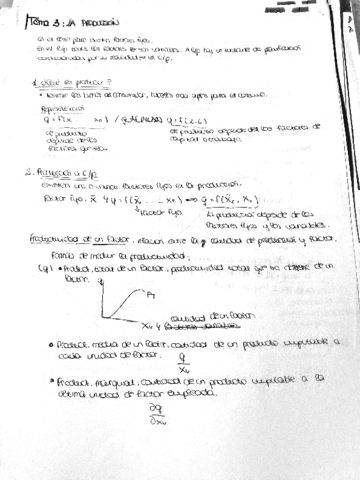 Tema 3: LA PRODUCCIÓN
En el corto plazo existen factores fijos.
En el l/p todos los factores son variables. A l/p hay un horizonte de planificación
condicionado por su realidad en el c/p.
1. ¿Qué es producir?
• bienes del consumidor, bienes más aptos para el consumo.
Representación
q = F(x ... xn) / q = F(L, K)
el producto depende de los factores generales.
el producto depende de los factores de capital o trabajo.
2. Producción a C/p
existen uno o más factores fijos en la producción.
Factor fijo. x̄ y q = F(x̄ ... xn) ⟹ q = F(x̄f, xv)
Factor fijo. La producción depende de los
factores fijos y los variables.
Productividad de un factor. relación entre la cantidad de producción y factor.
Formas de medir la productividad:
(q) • Product. total de un factor, productividad total que se obtiene de un
factor.
q
PT
xv
cantidad de factor
• Product. media de un factor. cantidad de un producto imputable a
cada unidad de factor. q/xv
• Product. marginal. cantidad de un producto imputable a la
última unidad de factor empleada.
∂q/∂xv